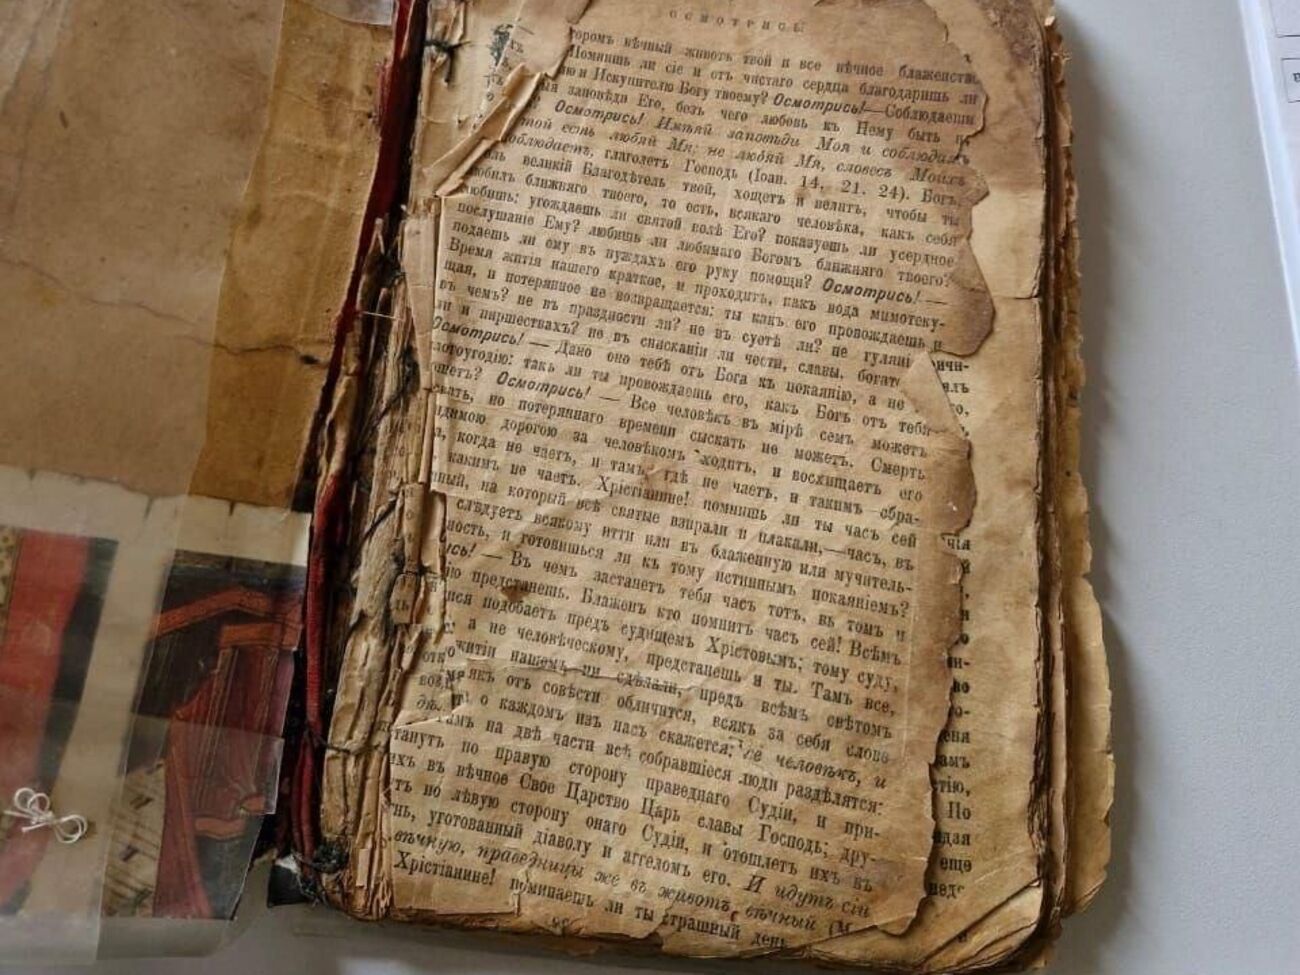 ОСМОТРИСЬ
торомъ вѣчный животъ твой и все вѣчное блаженств
Помнишь ли сіе и отъ чистаго сердца благодаришь ли
и Искупителю Богу твоему? Осмотрись!—Соблюдаеши
заповѣди Его, безъ чего любовь къ Нему быть н
Осмотрись! Имѣяй заповѣди Моя и соблюдаяй
той есть любяй Мя: не любяй Мя, словесъ Моихъ
соблюдаетъ, глаголетъ Господь (Іоан. 14. 21. 24). Богъ,
великій Благодѣтель твой, хощетъ и велитъ, чтобы ты
любилъ ближняго твоего, то есть, всякаго человѣка, какъ себя
любишь: угождаешь ли святой волѣ Его? показуешь ли усердное
послушаніе Ему? любишь ли любимаго Богомъ ближняго твоего?
подаешь ли ему въ нуждахъ его руку помощи? Осмотрись! —
Время житія нашего краткое, и проходитъ, какъ вода мимотеку-
щая, и потерянное не возвращается: ты какъ его провождаешь и
въ чемъ? не въ праздности ли? не въ суетѣ ли? не гуляні
ли и пиршествахъ? не въ сниcканіи ли чести, славы, богат
Осмотрись! — Дано оно тебѣ отъ Бога къ покаянію, а не
лотоугодію: такъ ли ты провождаешь его, какъ Богъ отъ тебя
ощетъ? Осмотрись! — Все человѣкъ въ мірѣ семъ можетъ
скать, но потеряннаго времени сыскать не можетъ. Смерть
идимою дорогою за человѣкомъ ходитъ, и восхищаетъ его
когда не чаетъ, и тамъ, гдѣ не чаетъ, и такимъ обра-
какимъ не чаетъ. Хрістіанине! помнишь ли ты часъ сей
ный, на который всѣ святые взирали и плакали,—часъ, въ
слѣдуетъ всякому итти или въ блаженную или мучитель-
ность, и готовишься ли къ тому истиннымъ покаяніемъ?
ись! — Въ чемъ застанетъ тебя часъ тотъ, въ томъ и
предстанешь. Блаженъ кто помнитъ часъ сей! Всѣмъ
подобаетъ предъ судищемъ Хрістовымъ; тому суду,
а не человѣческому, предстанешь и ты. Тамъ все,
житіи нашемъ ни сдѣлали, предъ всѣмъ свѣтомъ
якъ отъ совѣсти обличится, всякъ за себя слово
о каждомъ изъ насъ скажется: се человѣкъ, и
на двѣ части всѣ собравшіеся люди раздѣлятся:
танутъ по правую сторону праведнаго Судіи, и при-
ихъ въ вѣчное Свое Царство Царь славы Господь; дру-
ть по лѣвую сторону онаго Судіи, и отошлетъ ихъ въ
нь, уготованный діаволу и аггеломъ его. И идутъ сіи
вѣчную, праведницы же въ животъ вѣчный (М
Хрістіанине! поминаешь ли ты страшный день